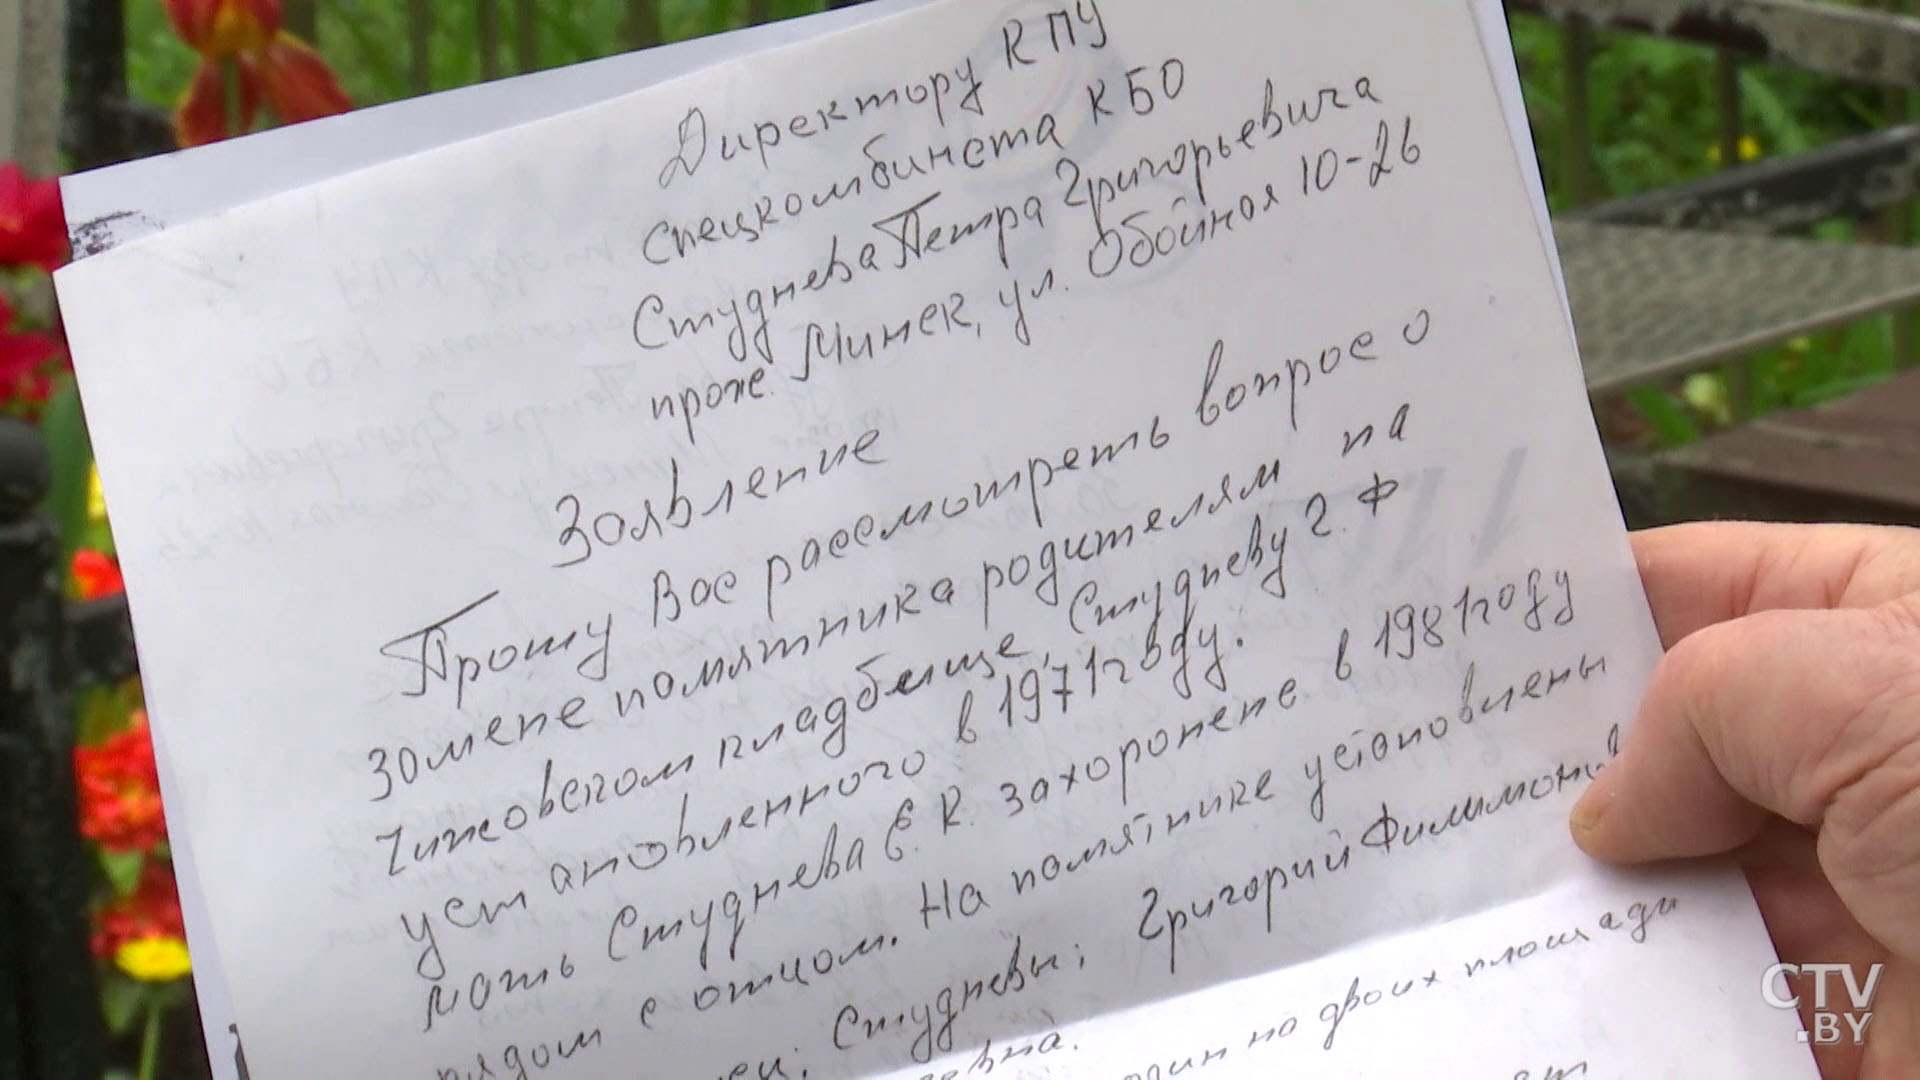 Директору КПУ
спецкомбината КБО
Студнева Петра Григорьевича
прож. Минск, ул. Обойная 10-26
Заявление
Прошу Вас рассмотреть вопрос о
замене памятника родителям на
Чижовском кладбище, Студневу Г. Ф
установленного в 1971 году.
мать Студнева Е. К. захоронена в 1981 году
рядом с отцом. На памятнике установлены
Студневы; Григорий Филимонов
один на двоих площади
CTV
.BY